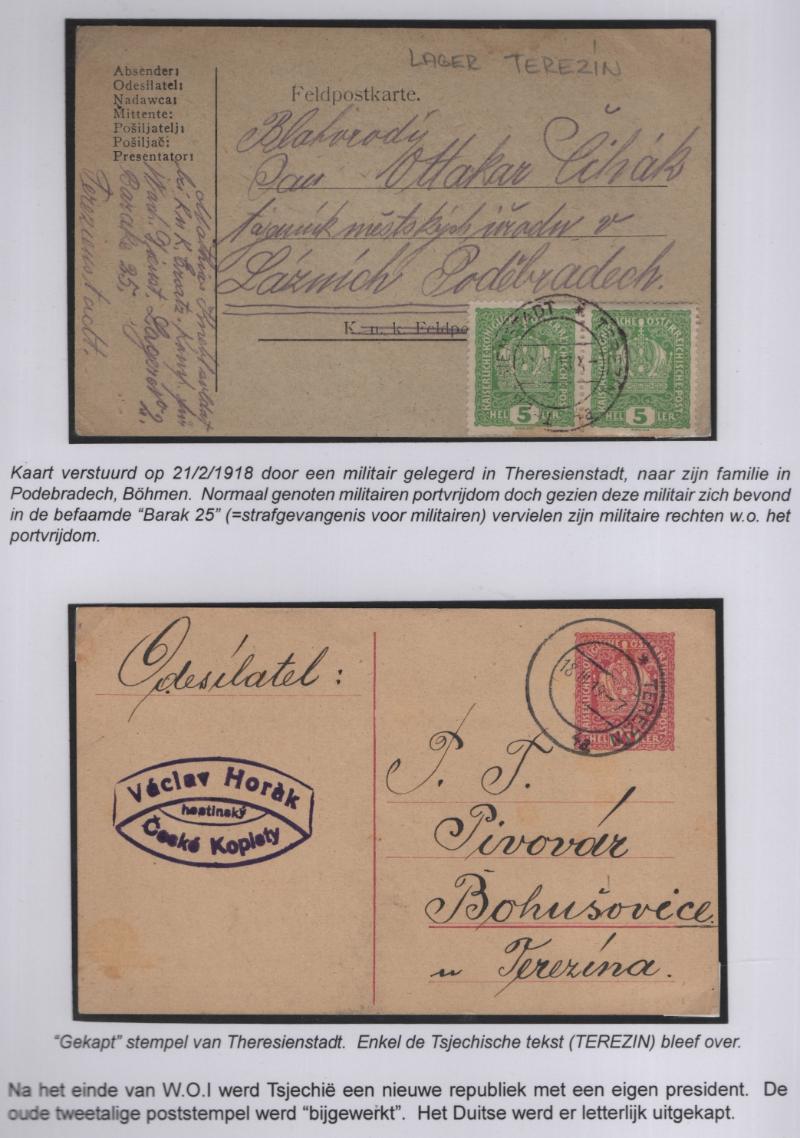 LAGER TEREZÍN
Absender:
Odesílatel:
Nadawca:
Mittente:
Pošiljatelj:
Pošiljač:
Presentator:
Feldpostkarte.
Blahorodý
Pan Ottakar Čihák
tajemník městských úřadu v
Lázních Poděbradech.
K. u. k. Feldpo
Barake 25,
Terezienstadt.
KAISERLICHE KÖNIGLICHE ÖSTERREICHISCHE POST
5
HELLER
KAISERLICHE KÖNIGLICHE ÖSTERREICHISCHE POST
5
HELLER
Kaart verstuurd op 21/2/1918 door een militair gelegerd in Theresienstadt, naar zijn familie in
Podebradech, Böhmen. Normaal genoten militairen portvrijdom doch gezien deze militair zich bevond
in de befaamde “Barak 25” (=strafgevangenis voor militairen) vervielen zijn militaire rechten w.o. het
portvrijdom.
Odesílatel:
18 III 19-7
* TEREZÍN
4a
Václav Horàk
hostinský
České Kopisty
P. T.
Pivovár
Bohušovice
u Terezína.
“Gekapt” stempel van Theresienstadt. Enkel de Tsjechische tekst (TEREZIN) bleef over.
Na het einde van W.O.I werd Tsjechië een nieuwe republiek met een eigen president. De
oude tweetalige poststempel werd “bijgewerkt”. Het Duitse werd er letterlijk uitgekapt.